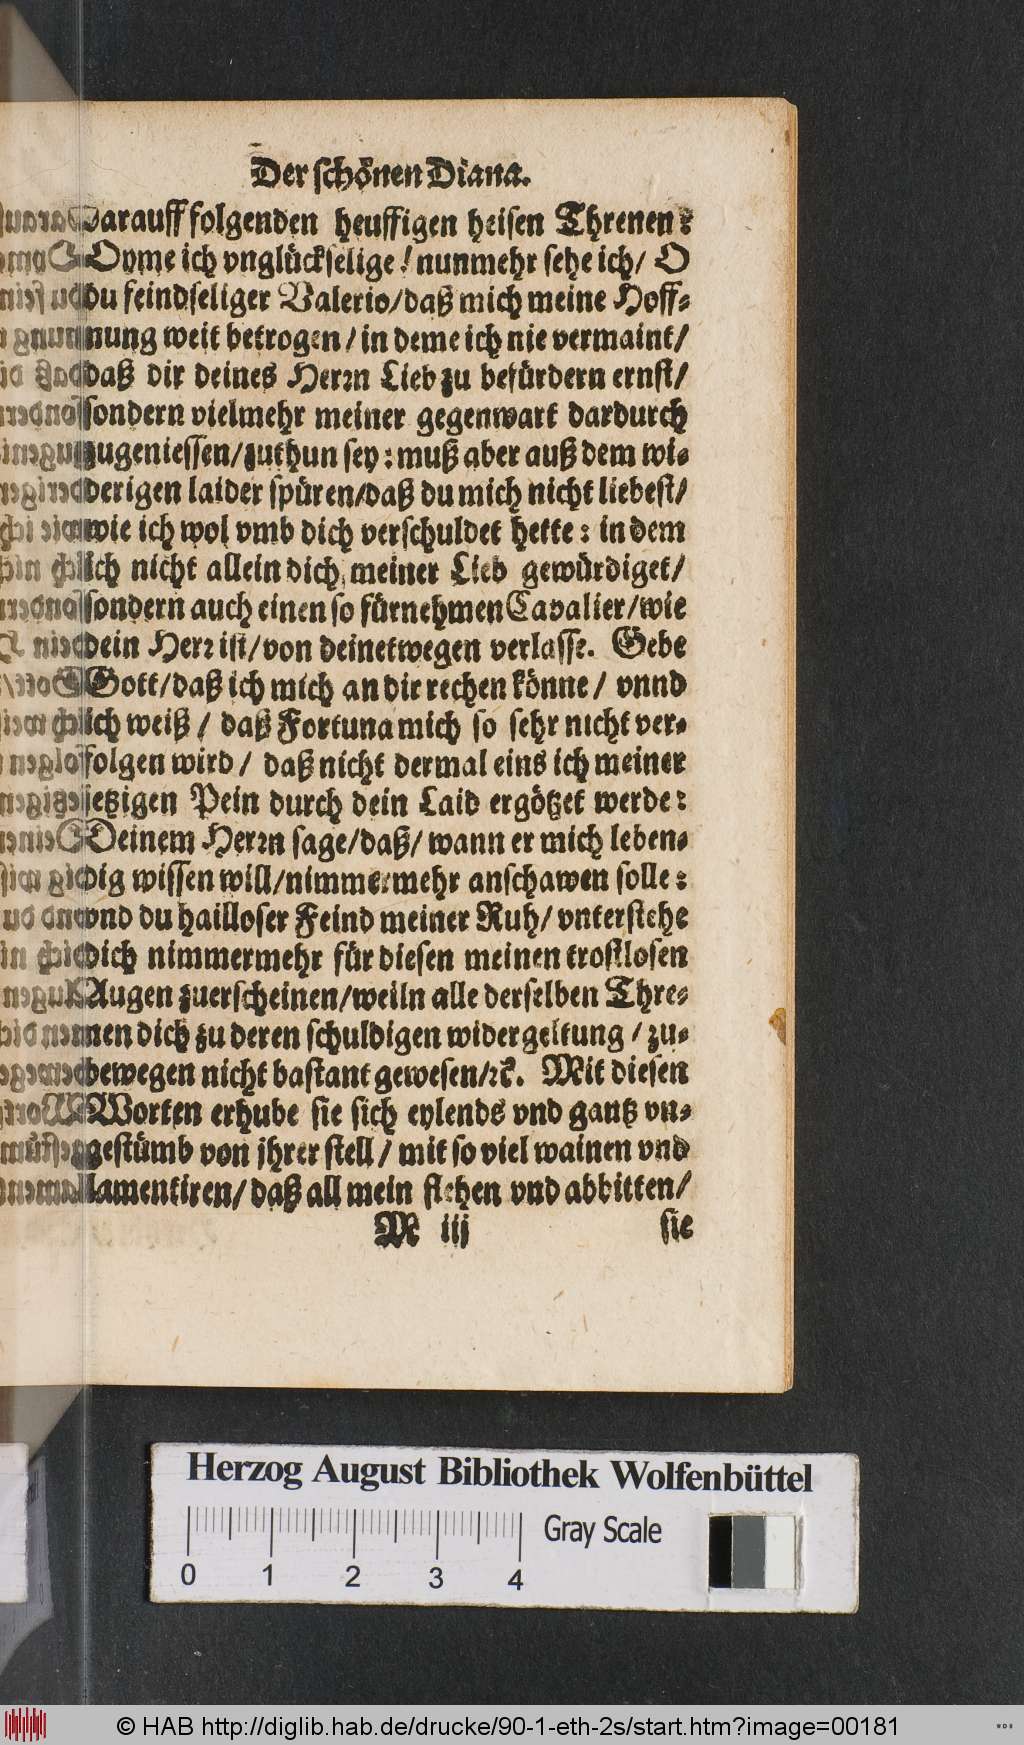 Der schönen Diana.
Darauff folgenden heuffigen heisen Threnen:
Oyme ich vnglückselige! nunmehr sehe ich/ O
du feindseliger Valerio/daß mich meine Hoff-
nung weit betrogen/ in deme ich nie vermaint/
daß dir deines Herrn Lieb zu befürdern ernst/
sondern vielmehr meiner gegenwart dardurch
zugeniessen/zuthun sey: muß aber auß dem wi-
derigen laider spüren/daß du mich nicht liebest/
wie ich wol vmb dich verschuldet hette: in dem
ich nicht allein dich meiner Lieb gewürdiget/
sondern auch einen so fürnehmen Cavalier/wie
dein Herr ist/von deinetwegen verlasse. Gebe
Gott/daß ich mich an dir rechen könne/ vnnd
ich weiß/ daß Fortuna mich so sehr nicht ver-
folgen wird/ daß nicht dermal eins ich meiner
ietzigen Pein durch dein Laid ergötzet werde:
Deinem Herrn sage/daß/ wann er mich leben-
dig wissen will/nimmermehr anschawen solle:
vnd du hailloser Feind meiner Ruh/ vnterstehe
dich nimmermehr für diesen meinen trostlosen
Augen zuerscheinen/weiln alle derselben Thre-
nen dich zu deren schuldigen widergeltung/ zu-
bewegen nicht bastant gewesen/ꝛc. Mit diesen
Worten erhube sie sich eylends vnd gantz vn-
gestümb von jhrer stell/ mit so viel wainen vnd
lamentiren/ daß all mein flehen vnd abbitten/
M iij sie
Herzog August Bibliothek Wolfenbüttel
0 1 2 3 4 Gray Scale
© HAB http://diglib.hab.de/drucke/90-1-eth-2s/start.htm?image=00181